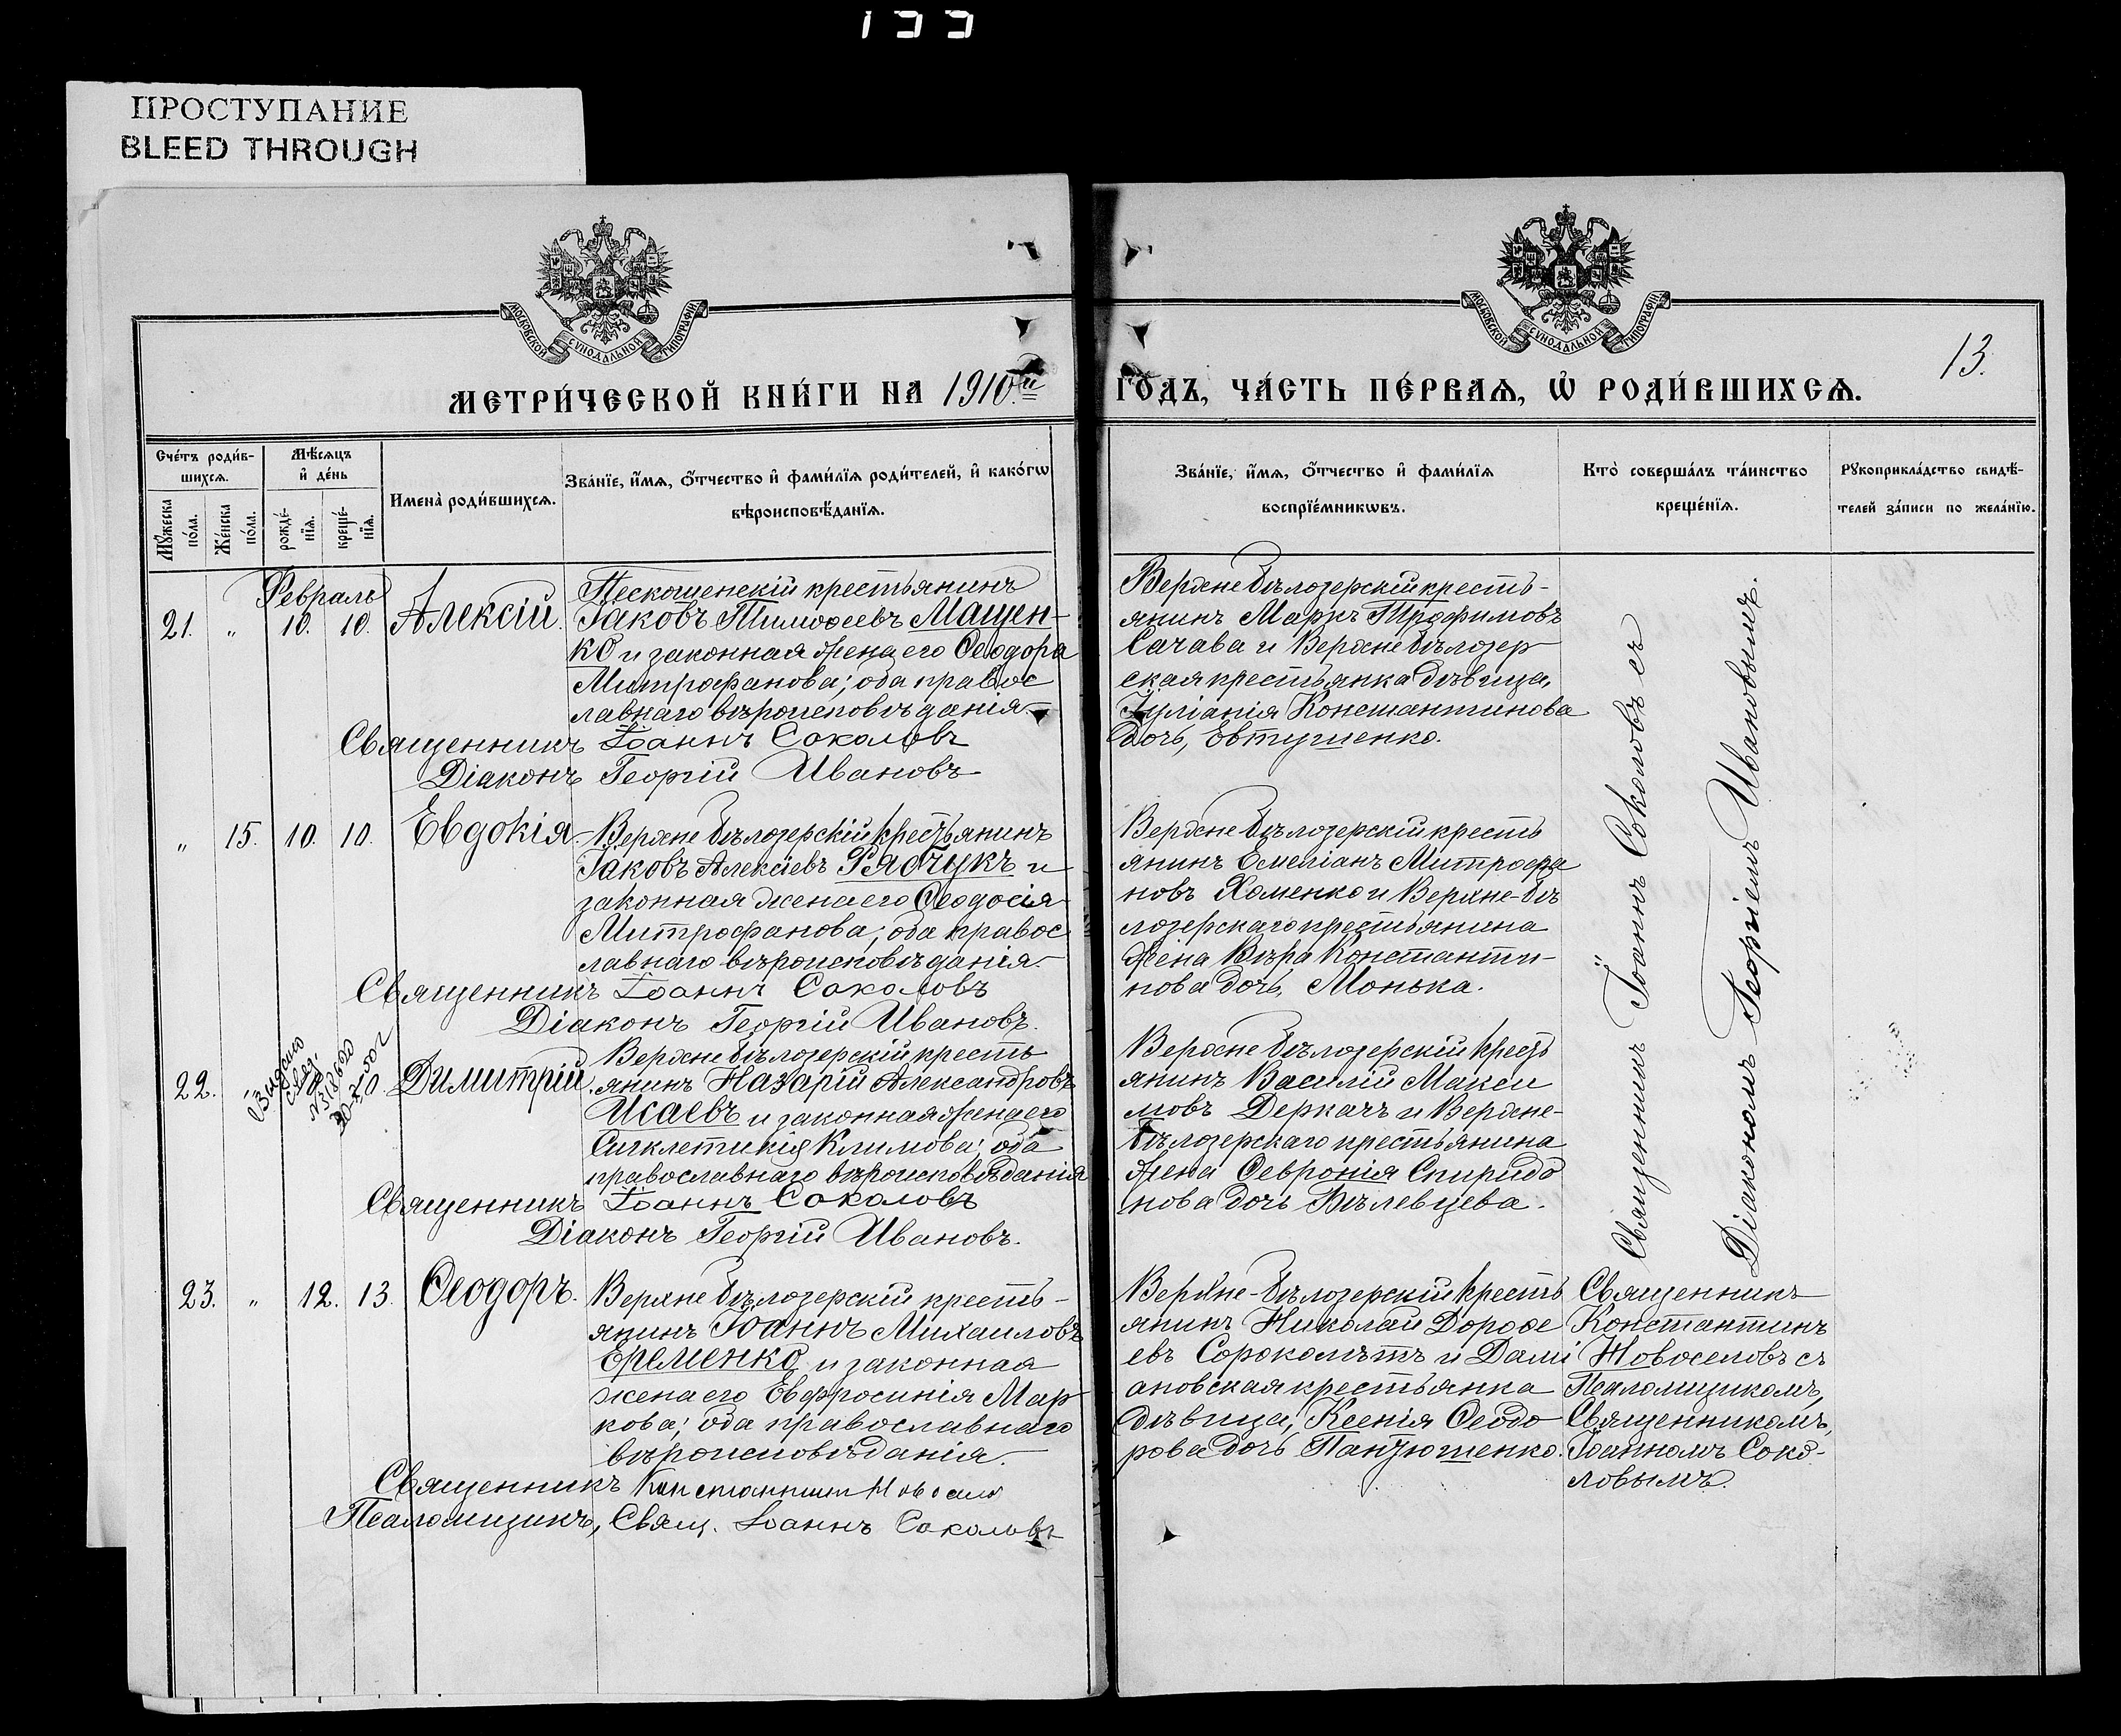 133
ПРОСТУПАНИЕ
BLEED THROUGH
МОСКОВСКОЙ СѴНОДАЛЬНОЙ ТИПОГРАФІИ
МОСКОВСКОЙ СѴНОДАЛЬНОЙ ТИПОГРАФІИ
13.
МЕТРИ́ЧЕСКОЙ КНИ́ГИ НА 1910.й ГО́ДЪ, ЧА́СТЬ ПЕ́РВАѦ, Ѡ҆ РОДИ́ВШИХСѦ.
Сче́тъ роди́в-
шихсѧ.
Мꙋ́жеска по́ла.
Же́нска по́ла.
Мѣ́сѧцъ
и҆ де́нь
рожде́-
нїѧ.
креще́-
нїѧ.
Имена̀ роди́вшихсѧ.
Зва́нїе, и҆́мѧ, ѻ҆́тчество и҆ фами́лїѧ роди́телей, и҆ како́гѡ
вѣроисповѣ́данїѧ.
Зва́нїе, и҆́мѧ, ѻ҆́тчество и҆ фами́лїѧ
воспрїе́мникѡвъ.
Кто̀ соверша́лъ та́инство
креще́нїѧ.
Рꙋкоприкла́дство свидѣ́-
телей за́писи по жела́нїю.
Февраль
21. „ 10. 10. Алексій.
Пескошенскій крестьянинъ
Іаковъ Тимоѳеевъ Мащен-
ко и законная жена его Ѳеодора
Митрофанова; оба правос
лавнаго вѣроисповѣданія.
Священникъ Іоаннъ Соколовъ
Діаконъ Георгій Ивановъ
Верхнебѣлозерскій кресть-
янинъ Маркъ Трофимовъ
Сачава и Верхнебѣлозер
ская крестьянка дѣвица,
Іуліанія Константинова
дочь, Евтушенко.
Священникъ Іоаннъ Соколовъ съ
Діакономъ Георгіемъ Ивановымъ.
„ 15. 10. 10. Евдокія.
Верхнебѣлозерскій крестьянинъ
Іаковъ Алексіевъ Рябчукъ и
законная жена его Ѳеодосія
Митрофанова; оба правос
лавнаго вѣроисповѣданія.
Священникъ Іоаннъ Соколовъ
Діаконъ Георгій Ивановъ.
Верхнебѣлозерскій кресть
янинъ Емеліанъ Митрофа
новъ Хоменко и Верхне-бѣ
лозерскаго крестьянина
жена Вѣра Константи-
нова дочь, Монька.
22. „ 10. Димитрій.
Верхнебѣлозерскій кресть
янинъ Назарій Александровъ
Исаевъ и законная жена его
Сигклетикія Климова; оба
православнаго вѣроисповѣданія
Священникъ Іоаннъ Соколовъ
Діаконъ Георгій Ивановъ.
Верхнебѣлозерскій кресть
янинъ Василій Макси
мовъ Деркачъ и Верхне-
бѣлозерскаго крестьянина
жена Ѳевронія Спиридо
нова дочь Бѣлевцева.
23. „ 12. 13. Ѳеодоръ.
Верхнебѣлозерскій кресть-
янинъ Іоаннъ Михаиловъ
Еременко и законная
жена его Евфросинія Мар
кова; оба православнаго
вѣроисповѣданія.
Священникъ Константин Новосело
Псаломщикъ, Свящ. Іоаннъ Соколовъ
Верхне-бѣлозерскій кресть
янинъ Николай Дороѳе
евъ Сорокалѣтъ и Дамі
ановская крестьянка
дѣвица, Ксенія Ѳеодо
рова дочь Пантюшенко.
Священникъ
Константинъ
Новоселовъ съ
Псаломщикомъ,
Священникомъ,
Іоанномъ Соко-
ловымъ.